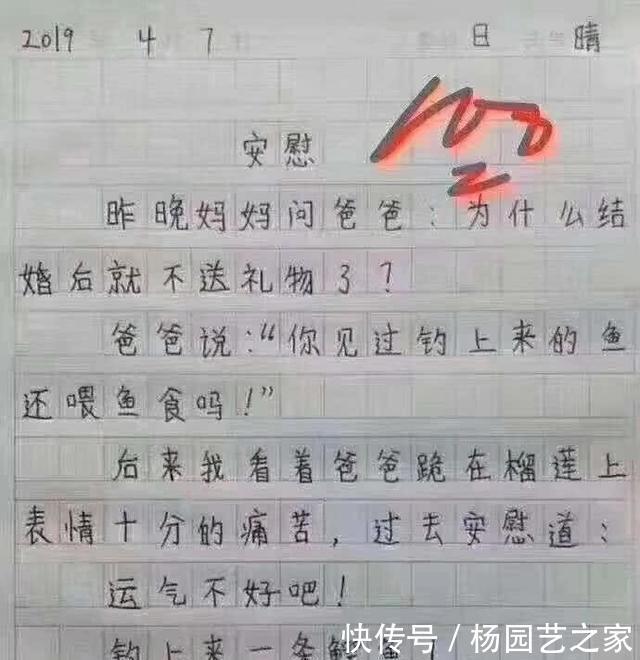 2019 4 7 日 晴
100
安慰
昨晚妈妈问爸爸:为什么结
婚后就不送礼物了?
爸爸说:“你见过钓上来的鱼
还喂鱼食吗!”
后来我看着爸爸跪在榴莲上
表情十分的痛苦,过去安慰道:
运气不好吧!
钓上来一条
快传号/杨园艺之家